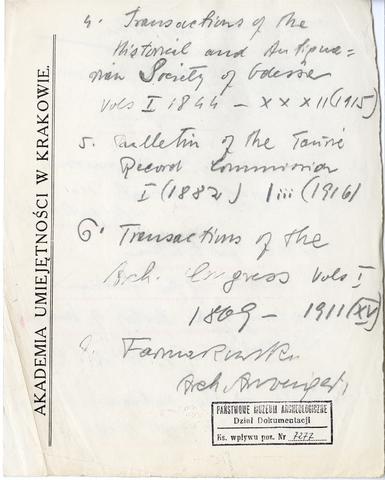 AKADEMIA UMIEJĘTNOŚCI W KRAKOWIE.
4. Transactions of the
Historical and Antiqua=
rian Society of Odessa
Vols I 1844 – XXXII (1915)
5. Bulletin of the Tauric
Record Commission
I (1882) liii (1916)
6. Transactions of the
Arch. Congress Vols I
1869 – 1911 (XV)
Farmakowski
Arch.
PAŃSTWOWE MUZEUM ARCHEOLOGICZNE
Dział Dokumentacji
Ks. wpływu poz. Nr 7277